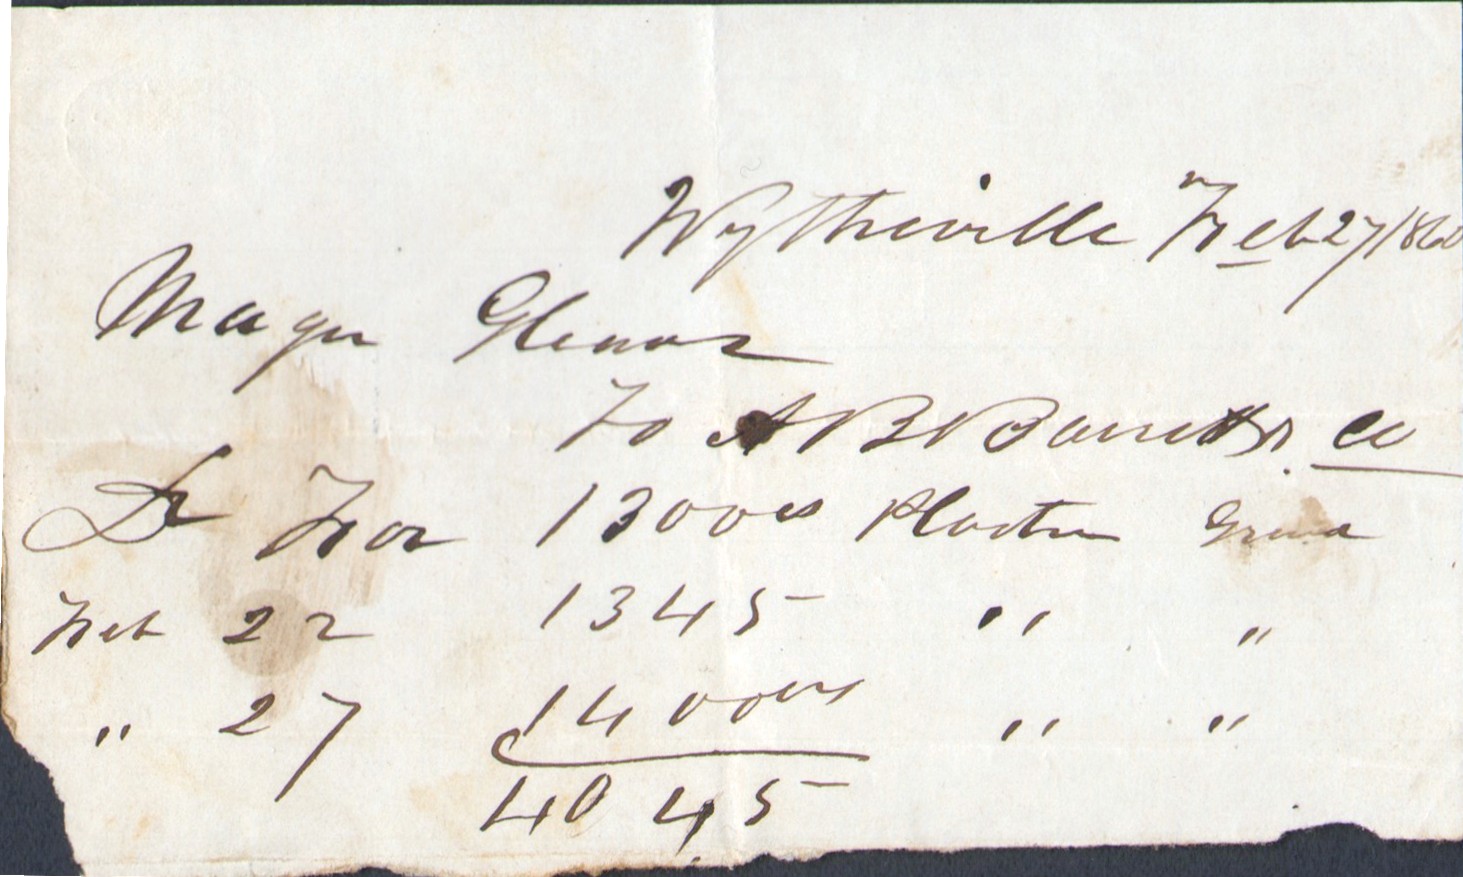 Wytheville Feb 27 1860
Major Glenas
To A B Barrett & Co
Dr For 1300 lbs Plaster
Feb 22 1345 " "
" 27 1400 lbs " "
4045